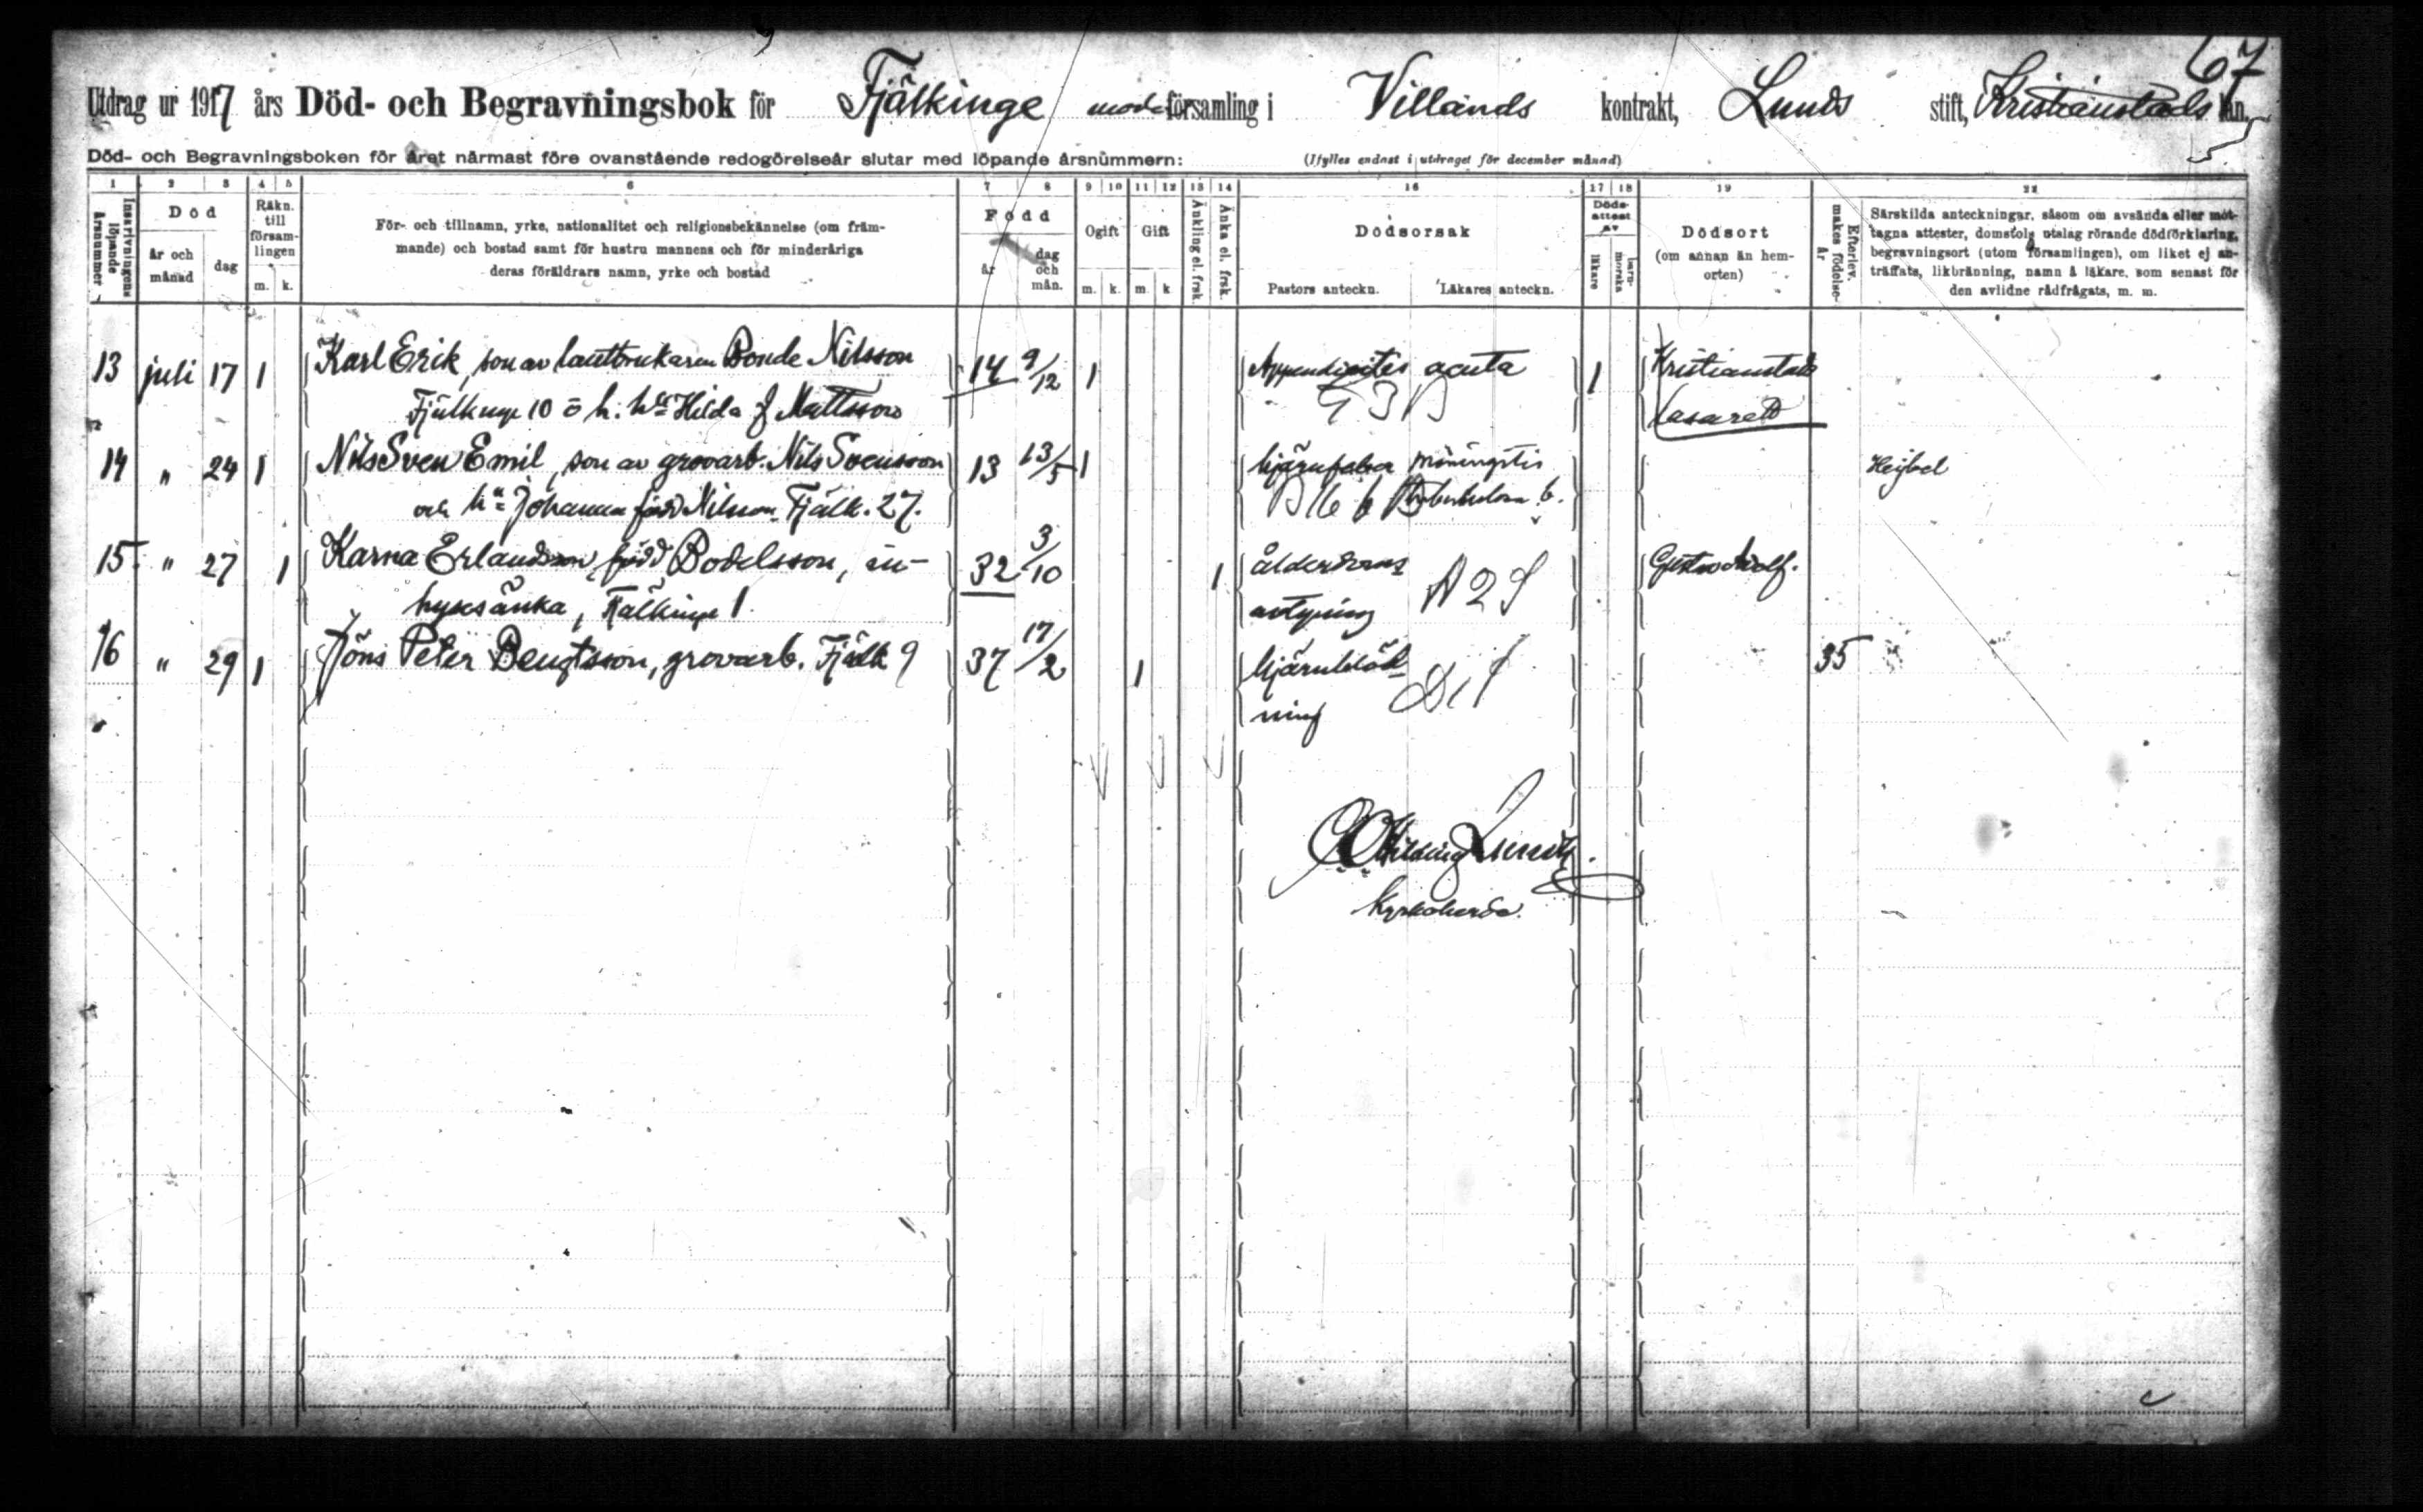 67
Utdrag ur 1917 års Död- och Begravningsbok för Fjälkinge moderförsamling i Villands kontrakt, Lunds stift, Kristianstads län.
Död- och Begravningsboken för året närmast före ovanstående redogörelseår slutar med löpande årsnummern: (Ifylles endast i utdraget för december månad)
1 2 3 4 5 6 7 8 9 10 11 12 13 14 16 17 18 19 21
Inskrivningens löpande årsnummer
Död
år och månad
dag
Räkn. till församlingen
m. k.
För- och tillnamn, yrke, nationalitet och religionsbekännelse (om främ-
mande) och bostad samt för hustru mannens och för minderåriga
deras föräldrars namn, yrke och bostad
Född
år
dag och mån.
Ogift
m. k.
Gift
m k
Änkling el. frsk.
Änka el. frsk.
Dödsorsak
Pastors anteckn. Läkares anteckn.
Döds-attest av
läkare
barn-morska
Dödsort
(om annan än hem-
orten)
Efterlev. makes födelse-år
Särskilda anteckningar, såsom om avsända eller mot-
tagna attester, domstols utslag rörande dödförklaring,
begravningsort (utom församlingen), om liket ej an-
träffats, likbränning, namn å läkare, som senast för
den avlidne rådfrågats, m. m.
13 juli 17 1 Karl Erik, son av lantbrukaren Bonde Nilsson 14 9/12 1 Appendicitis acuta 1 Kristianstads
Fjälkinge 10 o h. hu Hilda f Mattsson G3B Lasarett
14 " 24 1 Nils Sven Emil, son av grovarb. Nils Svensson 13 13/5 1 hjärnfeber Meningitis Heijbel
och hu Johanna född Nilsson Fjälk. 27. tuberkulosa
15 " 27 1 Karna Erlandsson, född Bodelsson, in- 32 3/10 1 ålderdoms Gustav Adolf.
hysesänka, Fjälkinge 1. avtyning A2
16 " 29 1 Jöns Peter Bengtsson, grovarb. Fjälk 9 37 17/2 1 hjärnblöd- 35
ning
Hilding Lundh
Kyrkoherde.